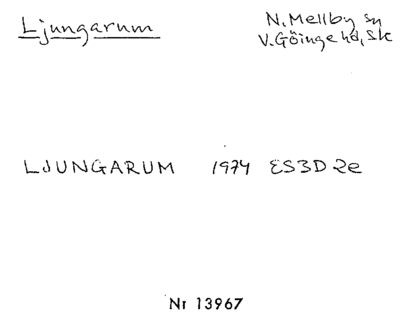 Ljungarum
N. Mellby sn
V. Göinge hd, Sk
LJUNGARUM 1974 ES3D2e
Nr 13967